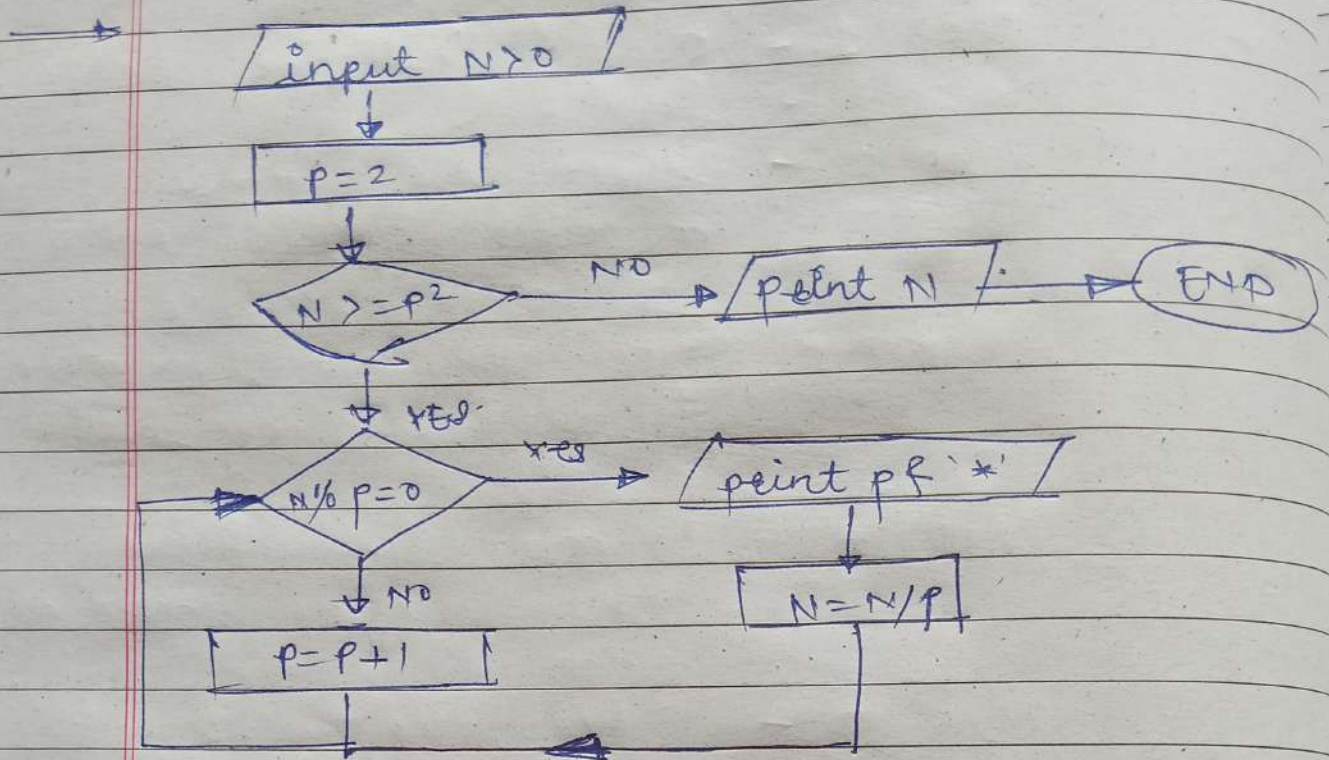 input N>0
p=2
N>=p²
NO
print N
END
YES
N% p=0
yes
print p & '*'
NO
N=N/p
p=p+1